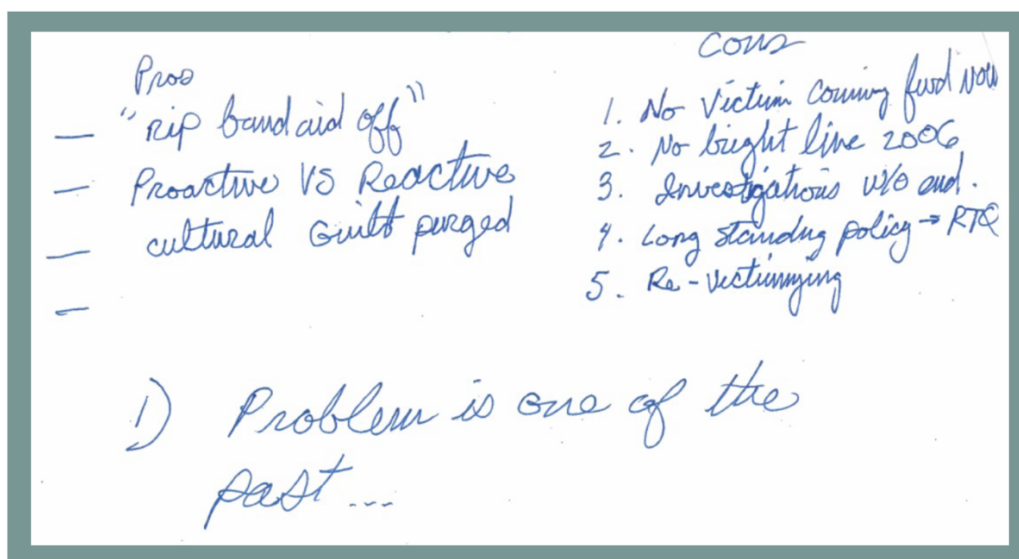 Pros
— "rip band aid off"
— Proactive VS Reactive
— cultural Guilt purged
—
Cons
1. No Victim Coming fwd now
2. No bright line 2006
3. Investigations w/o end.
4. Long Standing policy → RTQ
5. Re-victimizing
1) Problem is one of the
past...